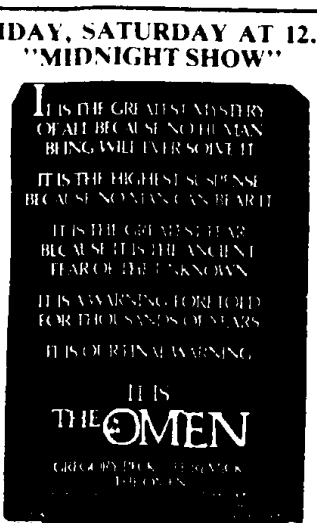 IDAY, SATURDAY AT 12.
"MIDNIGHT SHOW"
IT IS THE GREATEST MYSTERY
OF ALL BECAUSE NO HUMAN
BEING WILL EVER SOLVE IT
IT IS THE HIGHEST SUSPENSE
BECAUSE NO MAN CAN BEAR IT
IT IS THE GREATEST FEAR
BECAUSE IT IS THE ANCIENT
FEAR OF THE UNKNOWN
IT IS A WARNING FORETOLD
FOR THOUSANDS OF YEARS
IT IS OUR FINAL WARNING
IT IS
THE OMEN
GREGORY PECK REMICK
THE OMEN